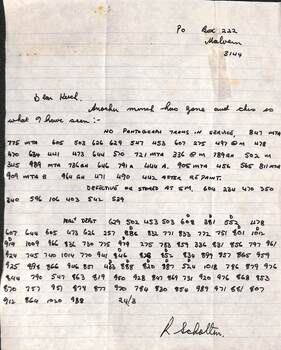 PO Box 222
Malvern
3144
Dear Hugh.
Another month has gone and this is
what I have seen :-
NO PANTOGRAPH TRAMS IN SERVICE, 847 MTA
775 MTA 605 503 626 629 547 453 607 275 497 @ M 478
470 634 441 473 644 510 721 MTA 336 @ M 789 GH 502 M
345 989 MTA 736 GH 646 791 A 444 A. 905 MTA 456 565 811 MTA
909 MTA B 964 GH 471 490 442 AFTER REPAINT.
DEFECTIVE OR STORED AT S.M. 604 234 470 350
240 596 106 403 542 529
MAL' DEPT 629 502 453 503 608 381 552 478
607 644 605 473 626 257 886 832 771 833 772 751 801 1012
919 1009 966 836 730 775 979 275 783 859 336 831 856 797 961
924 745 740 1014 770 941 846 828 852 830 899 957 865 959
925 898 866 906 851 433 888 820 887 524 1018 786 879 976
844 790 547 863 819 950 928 847 869 731 920 976 868 853
870 757 951 879 877 970 784 830 854 989 471 881 807
912 864 1020 938 24/3
R Scholten.